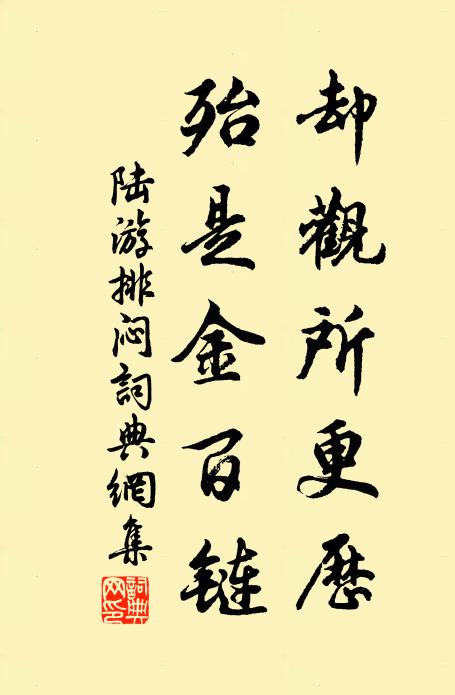 却觀所更歷
殆是金百鏈
陆游排闷詞典網集
詞典
网印